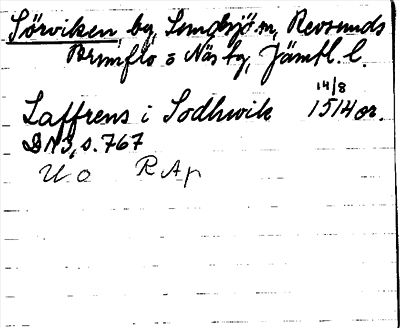 Sörviken by, Sundsjö sn, Revsunds
Brunflo o Näs tg, Jämtl. l.
14/8
Laffrens i Sodhwik 1514 or.
DN3, s. 767
U o R Ap